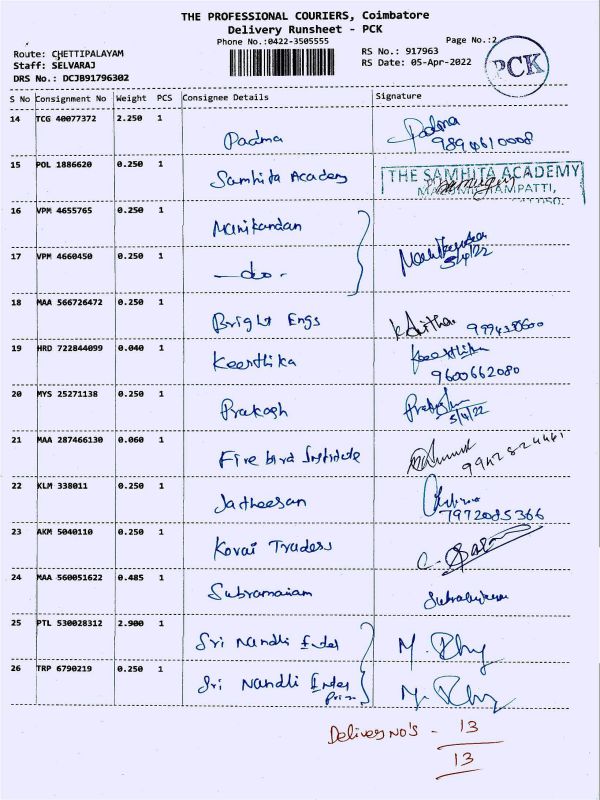 THE PROFESSIONAL COURIERS, Coimbatore
Delivery Runsheet - PCK
Phone No.:0422-3505555
Page No.:2
Route: CHETTIPALAYAM
Staff: SELVARAJ
DRS No.: DCJB91796302
RS No.: 917963
RS Date: 05-Apr-2022
PCK
S No Consignment No Weight PCS Consignee Details Signature
14 TCG 40077372 2.250 1 Padma Padma
9894610008
15 POL 1886620 0.250 1 Samhita Academy THE SAMHITA ACADEMY
16 VPM 4655765 0.250 1 Manikandan
17 VPM 4660450 0.250 1 -do- 5/4/22
18 MAA 566726472 0.250 1 Bright Engs
19 HRD 722844099 0.040 1 Keerthika Keerthika
9600662080
20 MYS 25271138 0.250 1 Prakash
5/4/22
21 MAA 287466130 0.060 1 Fire bird Institute
22 KLM 338011 0.250 1 Jatheesan
7972085366
23 AKM 5040110 0.250 1 Kovai Traders
24 MAA 560051622 0.485 1 Subramaiam
25 PTL 530028312 2.900 1 Sri Nandhi Enter
26 TRP 6790219 0.250 1 Sri Nandhi Enter
Delivery No's - 13
13